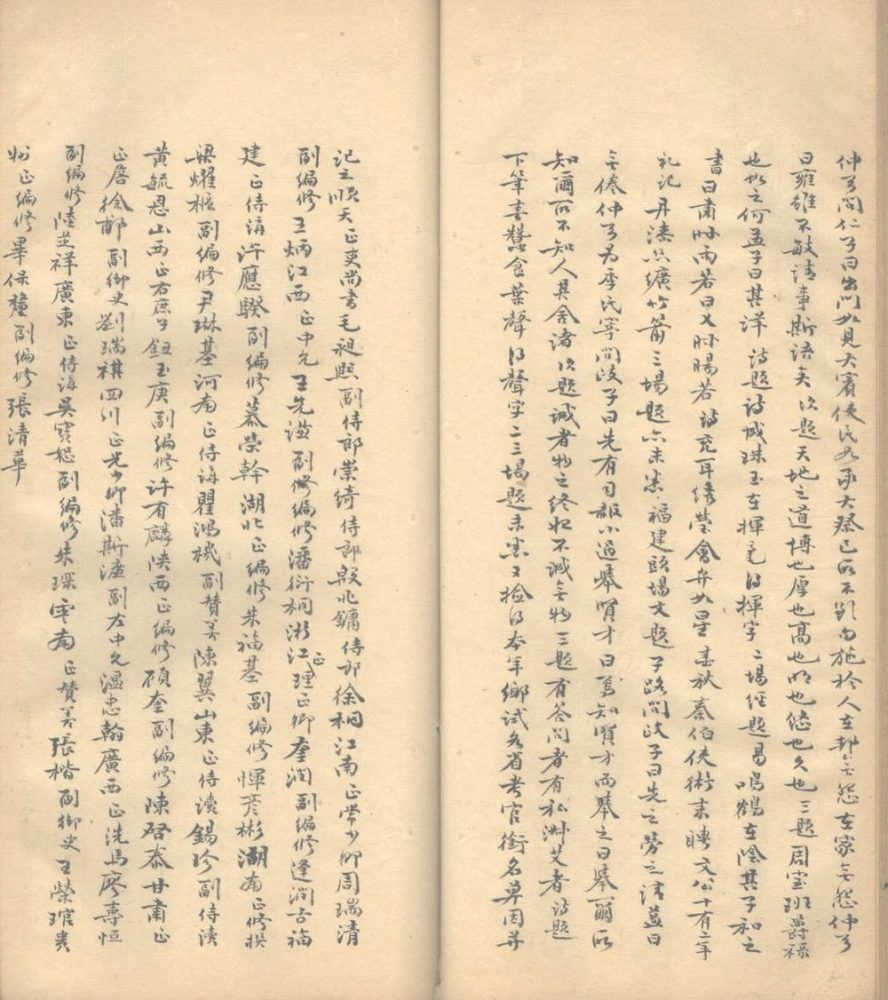 仲弓問仁子曰出門如見大賓使民如承大祭己所不欲勿施於人在邦無怨在家無怨仲弓
曰雍雖不敏請事斯語矣次題天地之道博也厚也高也明也悠也久也三題周室班爵祿
也如之何孟子曰其詳詩題詩成珠玉在揮毫得揮字二場經題易鳴鶴在陰其子和之
書曰肅時雨若曰乂時暘若詩充耳琇瑩會弁如星春秋秦伯使術來聘文公十有二年
礼記丹漆絲纊竹箭三場題亦未悉福建頭場文題子路問政子曰先之勞之請益曰
無倦仲弓為季氏宰問政子曰先有司赦小過舉賢才曰焉知賢才而舉之曰舉爾所
知爾所不知人其舍諸次題誠者物之終始不誠無物三題有答問者有私淑艾者詩題
下筆春蠶食葉聲得聲字二三場題未悉又檢得本年鄉試各省考官銜名單因并
記之順天正吏尚書毛昶熙副侍郎崇綺侍郎殷兆鏞侍郎徐桐江南正常少卿周瑞清
副編修王炳江西正中允王先謙副編修潘衍桐浙江正理正卿奎潤副編修逢潤古福
建正侍講許應騤副編修慕榮幹湖北正編修朱福基副編修惲彥彬湖南正修撰
梁耀樞副編修尹琳基河南正侍講瞿鴻禨副贊善陳翼山東正侍讀錫珍副侍讀
黃毓恩山西正右庶子鈕玉庚副編修許有麟陝西正編修顧奎副編修陳啓泰甘肅正
正詹徐郙副御史劉瑞祺四川正光少卿潘斯濂副左中允溫忠翰廣西正洗馬廖壽恒
副編修陸芝祥廣東正侍講吳寶恕副編修朱琛雲南正贊善張楷副御史王榮琯貴
州正編修畢保釐副編修張清華